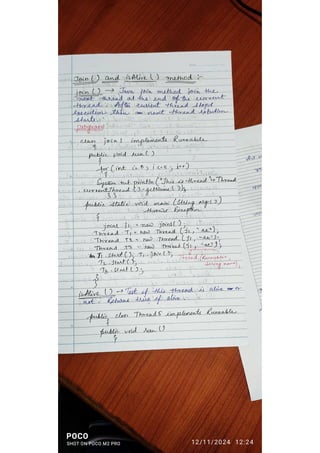 Join() and isAlive() method :-
join() → Java join method join the
next thread at the end of the current
thread. After current thread stops
execution then next thread execution
starts.
Program
class join1 implements Runnable
{
public void run()
{
for (int i=0; i<5; i++)
{
System.out.println("This is thread"+Thread
.currentThread().getName());
}}
public static void main (String args[])
throws Exception
{
join1 J1 = new join1();
Thread T1 = new Thread (J1, "aa");
Thread T2 = new Thread (J1,
Thread T3 = new Thread (J1,
T1.start(); T1.join();
T2.start();
T3.start();
}
}
isAlive() → Test if this thread is alive or
not. Returns true if alive.
public class Thread5 implements Runnable
{
public void run()
{
POCO
SHOT ON POCO M2 PRO
12/11/2024 12:24